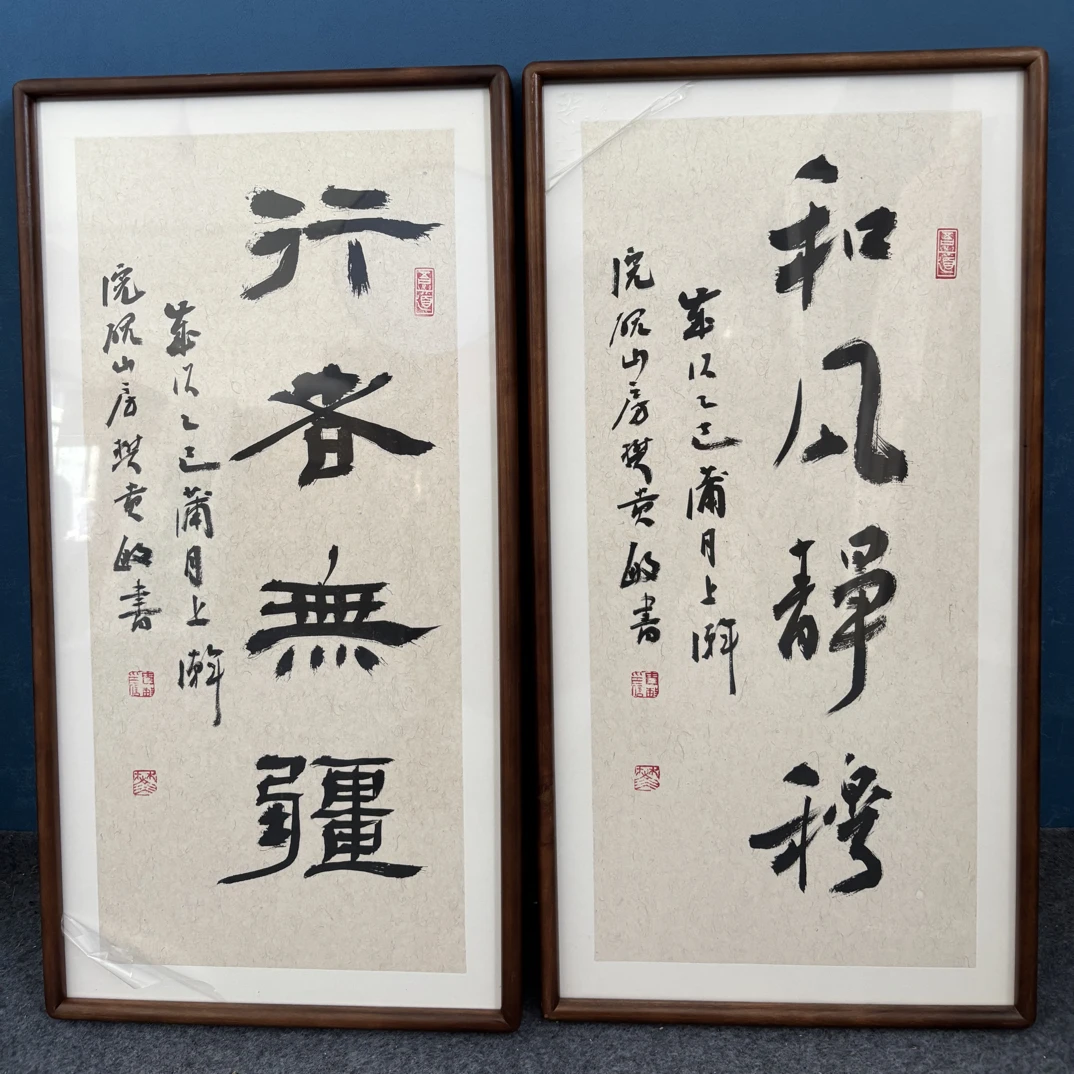 和风靜穆
歲次乙巳蒲月上澣
浣砚山房樊贵敏書
行者無疆
歲次乙巳蒲月上澣
浣砚山房樊贵敏書